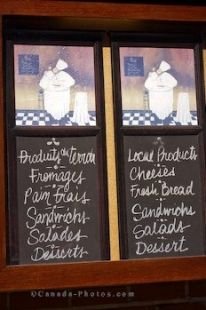 Produits du terroir
Fromages
Pain frais
Sandwichs
Salades
Desserts
Local Products
Cheeses
Fresh Bread
Sandwichs
Salads
Dessert
©Canada-Photos.com